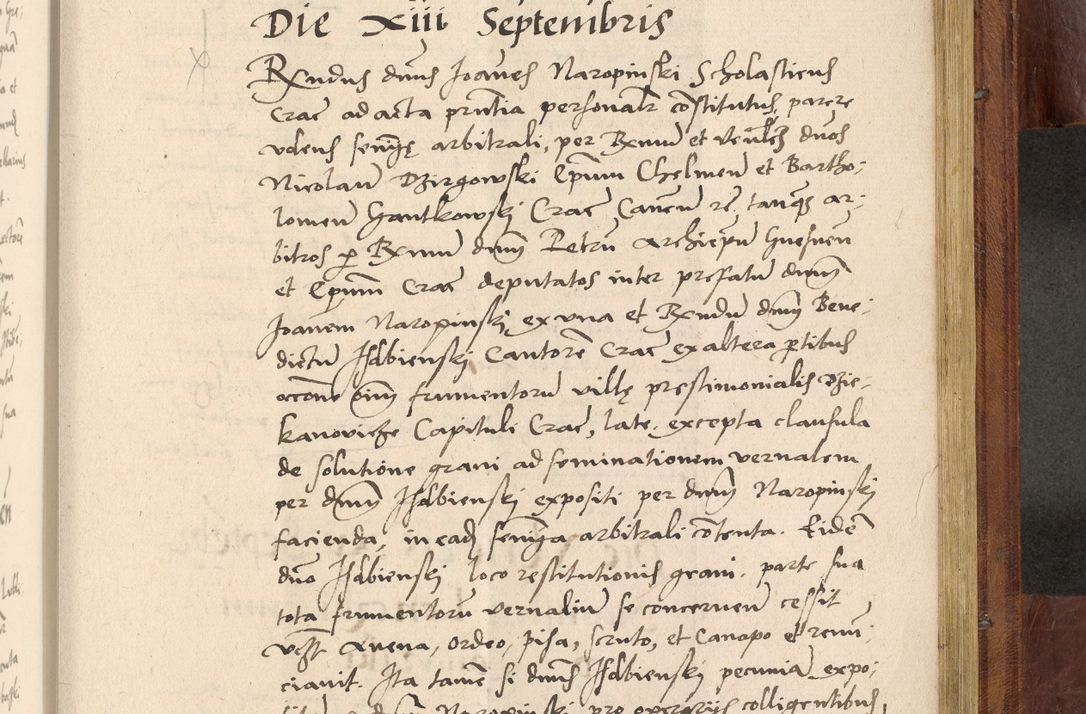 Die xiii Septembris
Rxndus dnus Joanes Naropinski Scholasticus
Crac ad acta prntia personalr constitutus, parere
volens senntię arbitrali, per Rxnum et Venlem dnos
Nicolaum Dzirgowski Epum Chelmen et Bartho-
lomeu Gantkowskj Crac Canen re, tanq ar-
bitros p Rxmum dnum Petru Archiepum Gnesnen
et Epum Crac deputatos inter prefatu dnum
Joanem Naropinskj ex una et Rxndu dnum Bene-
dictu Isdbienskj Cantore Crac ex altera ptibus
occone oium frumentoru villę prestimonialis Dzie-
kanovicze Capituli Crac, late, excepta clausula
de solutione grani ad seminationem vernalem
per dnum Isdbienskj expositi per dnum Naropinskj
facienda, in eadem sennta arbitrali contenta. Eidem
dno Isdbienskj loco restitutionis grani, parte sua
tota frumentoru vernaliu se concernen cessit
vz Avena, ordeo, pisa, scruto, et Canapo et renun-
ciavit. Ita tamen si dnus Isdbienskj pecunia expo-
dnum Naropinski pro operariis colligentibus,